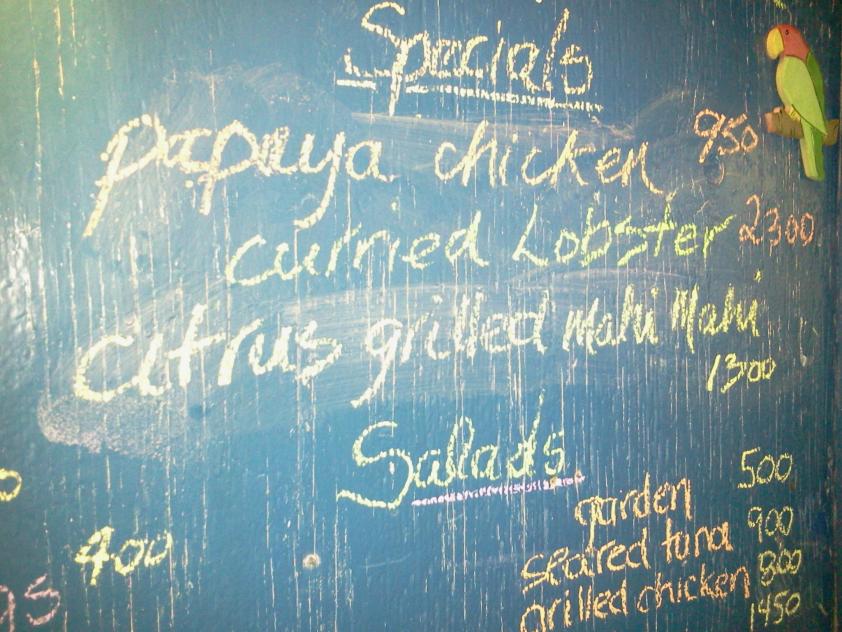 Specials
papaya chicken 950
curried Lobster 2300
citrus grilled Mahi Mahi
1300
Sallads
garden 500
seared tuna 900
grilled chicken 800
1450
400